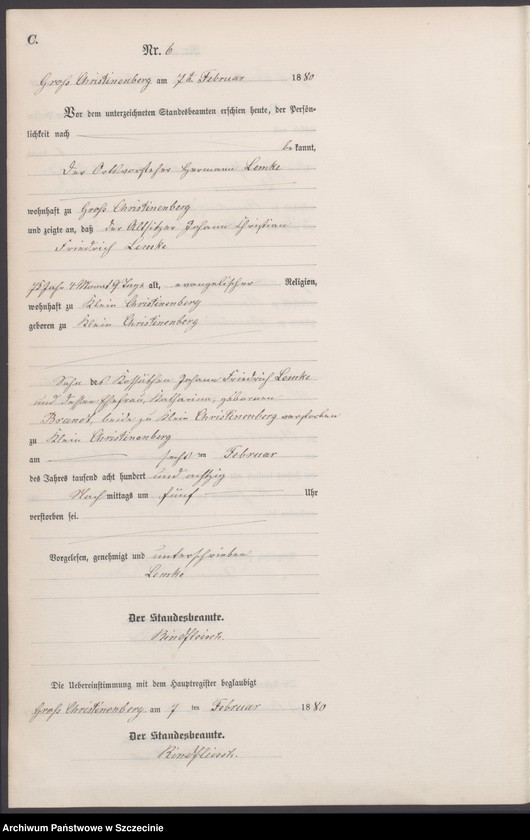 C.
Nr. 6
Groß Christinenberg am 7 ten Februar 1880
Vor dem unterzeichneten Standesbeamten erschien heute, der Persön-
lichkeit nach
bekannt,
der Ortsvorsteher Hermann Lemke
wohnhaft zu Groß Christinenberg
und zeigte an, daß der Altsitzer Johann Christian
Friedrich Lemke
Jahr 4 Monat 9 Tage alt, evangelischer Religion,
wohnhaft zu Klein Christinenberg
geboren zu Klein Christinenberg
Sohn des Kossäthen Johann Friedrich Lemke
und dessen Ehefrau, Katharina, geborenen
Brandt, beide zu Klein Christinenberg verstorben
zu Klein Christinenberg
am sechs ten Februar
des Jahres tausend acht hundert und achtzig
Nach mittags um fünf Uhr
verstorben sei.
Vorgelesen, genehmigt und unterschrieben
Lemke
Der Standesbeamte.
Rindfleisch.
Die Uebereinstimmung mit dem Hauptregister beglaubigt
Groß Christinenberg am 7 ten Februar 1880
Der Standesbeamte.
Rindfleisch.
Archiwum Państwowe w Szczecinie